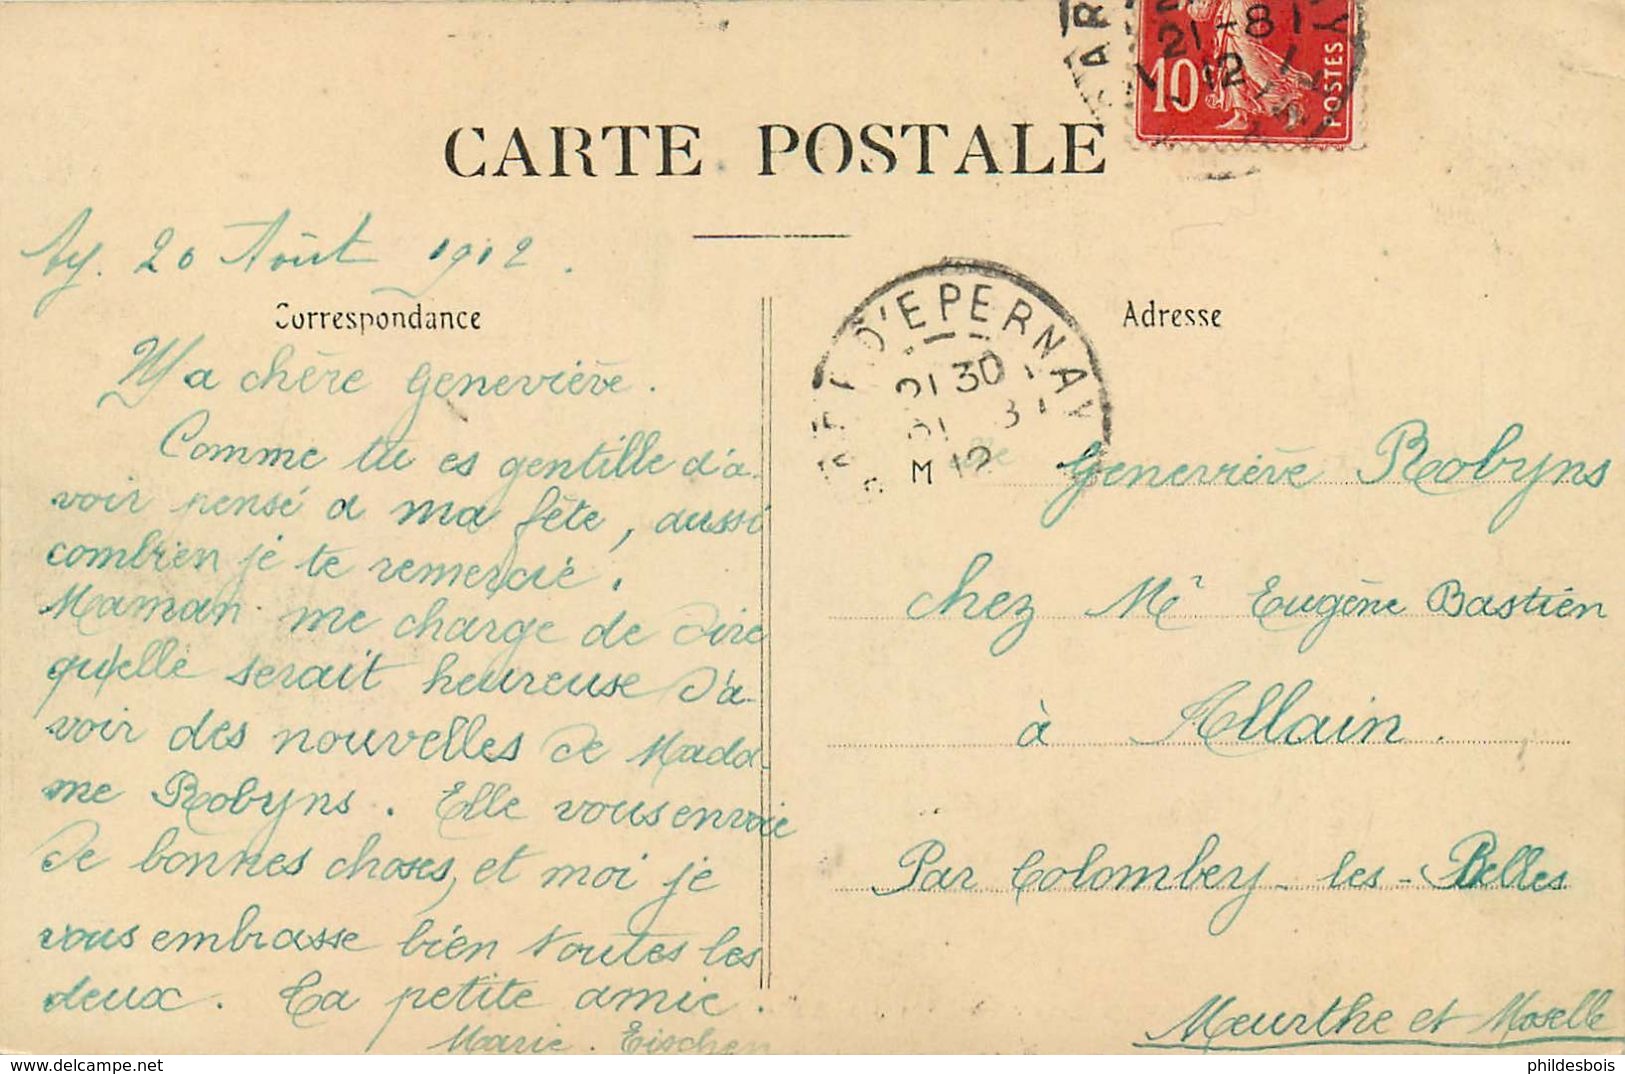 21-8
12
10
POSTES
CARTE POSTALE
Ay. 20 Août 1912.
Correspondance
Ma chère Geneviève.
Comme tu es gentille d'a-
voir pensé a ma fête, aussi
combien je te remercie.
Maman me charge de dire
qu'elle serait heureuse d'a-
voir des nouvelles de Mada-
me Robyns. Elle vous envoie
de bonnes choses, et moi je
vous embrasse bien toutes les
deux. Ta petite amie.
Marie. Eischen
D'EPERNAY
21 30
M 12
Adresse
Mlle Geneviève Robyns
chez Mr Eugène Bastien
à Allain.
Par Colombey-les-Belles
Meurthe et Moselle
delcampe.net
phildesbois